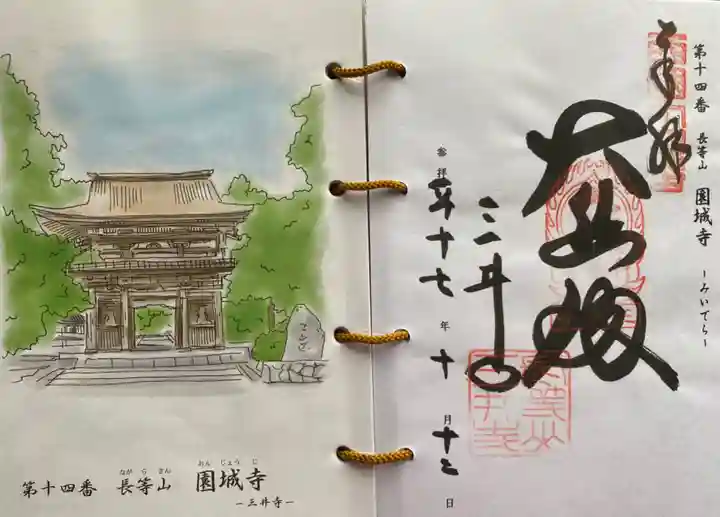 第十四番 長等山 園城寺 ーみいでらー
奉拝
大悲殿
三井寺
参拝 十七年十月十二日
ながらさん おんじょうじ
第十四番 長等山 園城寺
ー三井寺ー